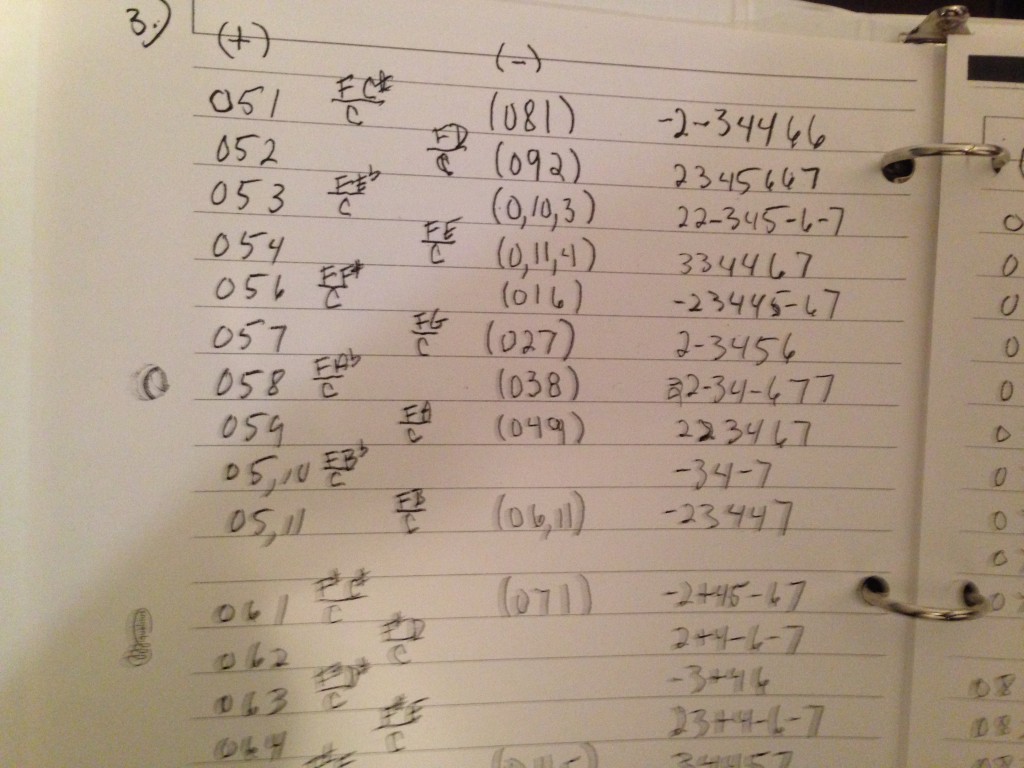 3.)
(+) (-)
051 FC#/C (081) -2-34466
052 FD/C (092) 2345667
053 FEb/C (0,10,3) 22-345-6-7
054 FE/C (0,11,4) 334467
056 FF#/C (016) -23445-67
057 FG/C (027) 2-3456
058 FAb/C (038) 2-34-677
059 FA/C (049) 223467
05,10 FBb/C -34-7
05,11 FB/C (06,11) -23447
061 F#C#/C (071) -2+45-67
062 F#D/C 2+4-6-7
063 F#D#/C -3+46
064 F#E/C 23+4-6-7
34457